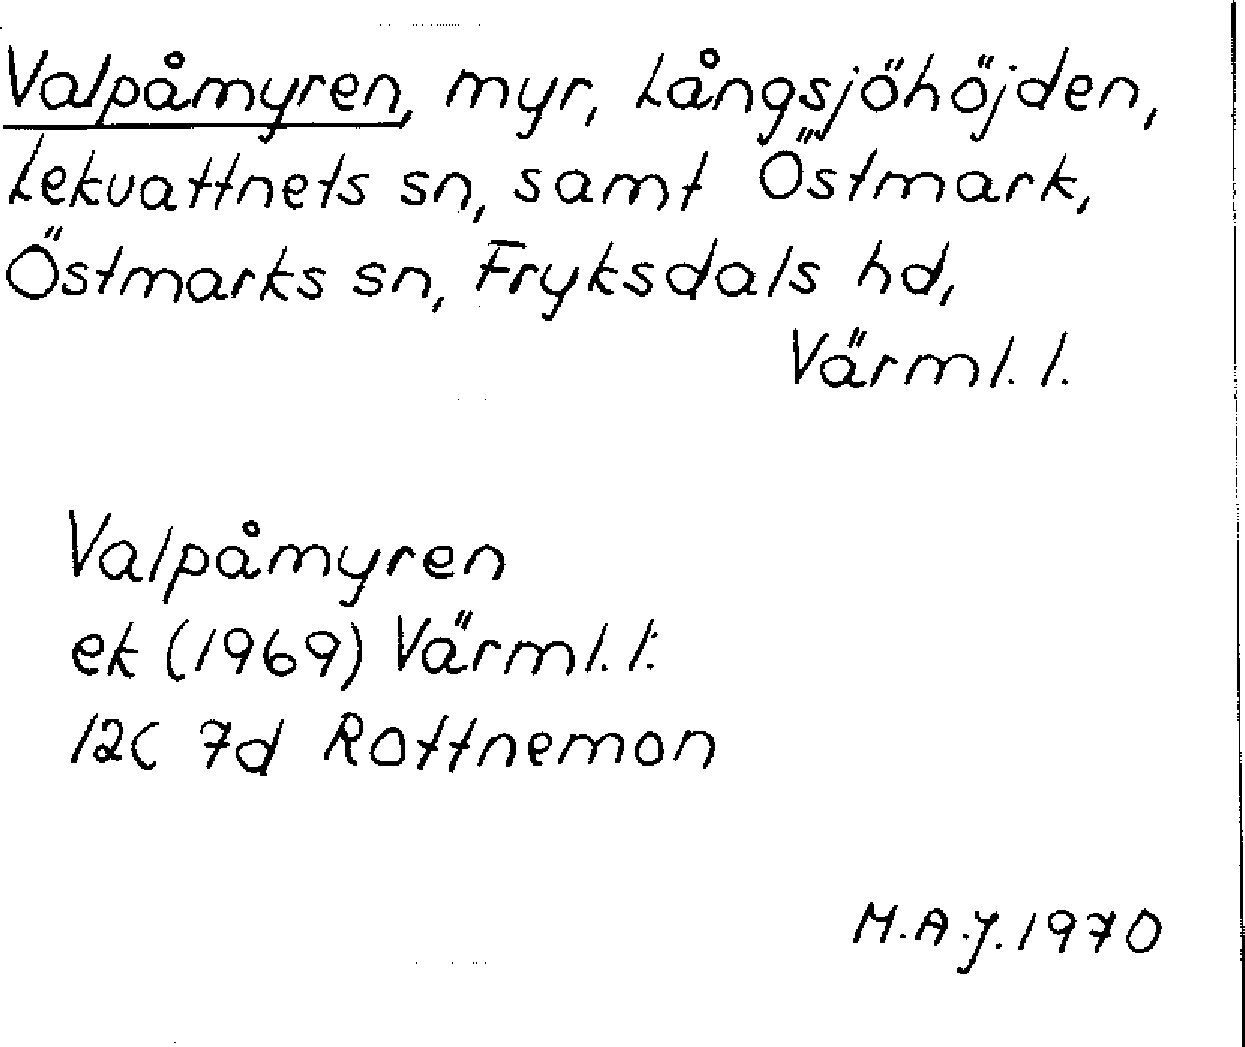 Valpåmyren, myr, Långsjöhöjden,
Lekvattnets sn, samt Östmark,
Östmarks sn, Fryksdals hd,
Värml. l.
Valpåmyren
ek (1969) Värml. l.
12C 7d Rottnemon
M.A.J. 1970